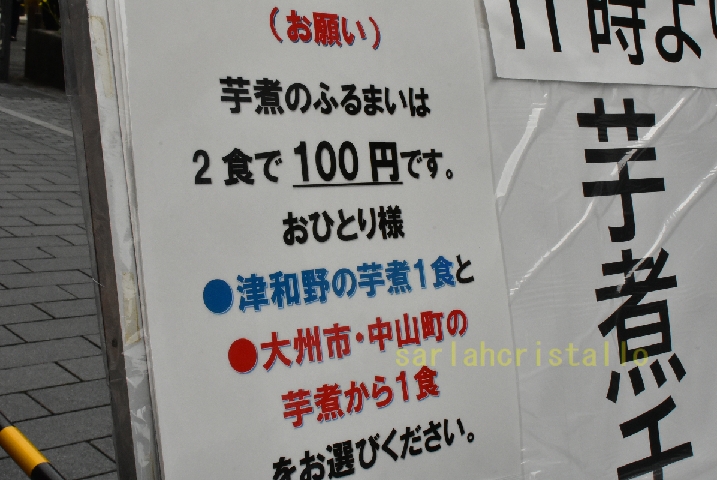 (お願い)
芋煮のふるまいは
2食で 100円です。
おひとり様
●津和野の芋煮1食と
●大州市・中山町の
芋煮から1食
をお選びください。
11時よ
芋煮
sarlahcristallo